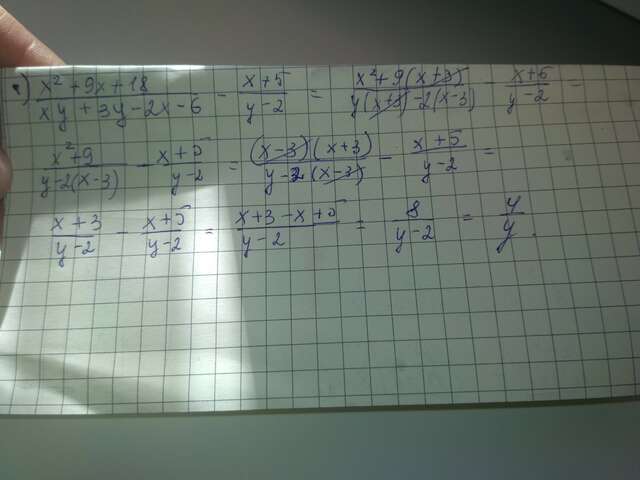 x² + 9x + 18 / xy + 3y - 2x - 6 - x + 5 / y - 2 = x² + 9(x + 3) / y(x + 3) - 2(x - 3) - x + 5 / y - 2 =
x² + 9 / y - 2(x - 3) - x + 5 / y - 2 = (x - 3)(x + 3) / y - 2(x - 3) - x + 5 / y - 2 =
x + 3 / y - 2 - x + 5 / y - 2 = x + 3 - x + 5 / y - 2 = 8 / y - 2 = 4 / y.